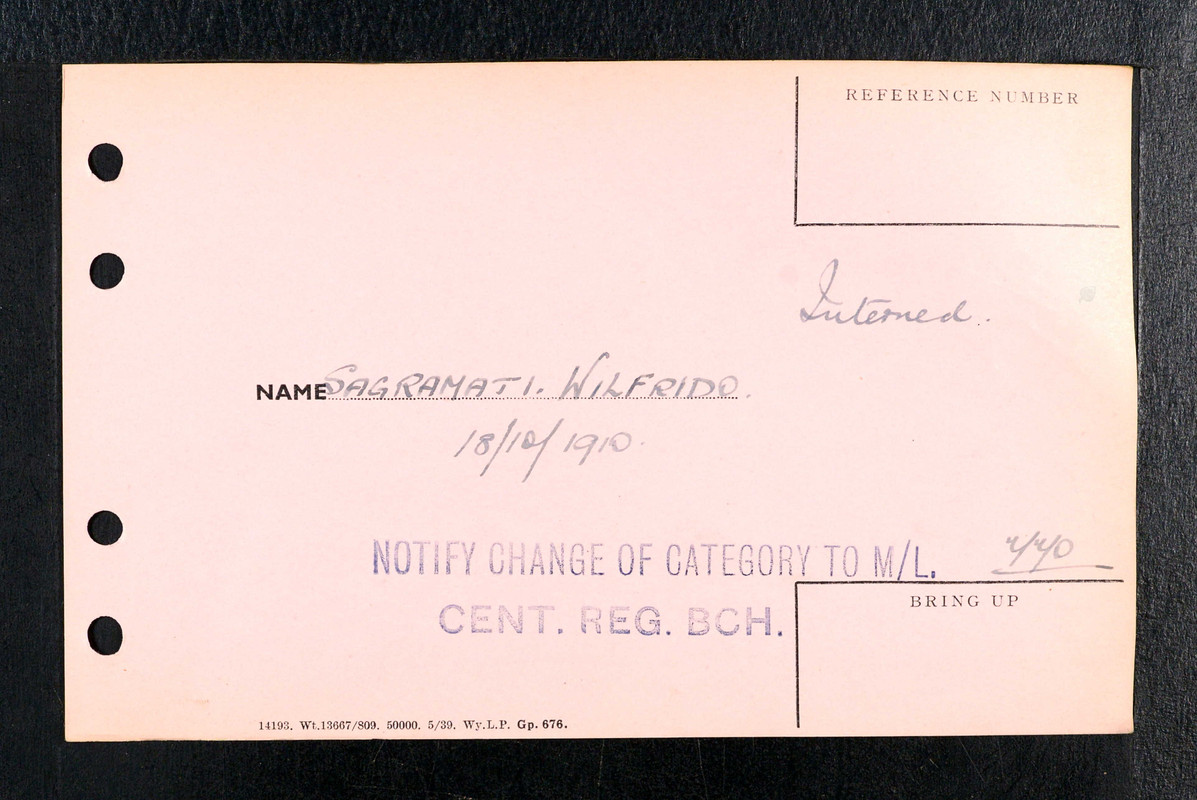 REFERENCE NUMBER
Interned.
NAME SAGRAMATI. WILFRIDO.
18/10/1910.
NOTIFY CHANGE OF CATEGORY TO M/L.
BRING UP
CENT. REG. BCH.
14193. Wt.13667/809. 50000. 5/39. Wy.L.P. Gp. 676.